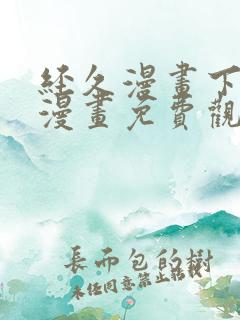 經久漫畫下
漫畫免費觀
長而包的樹
未任同意禁止轉載